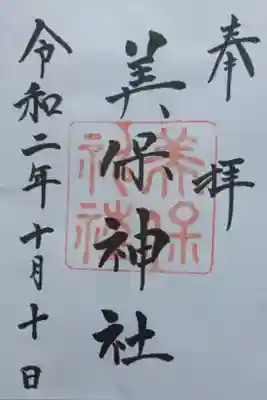 奉拝
美保神社
令和二年十月十日
美保
神社